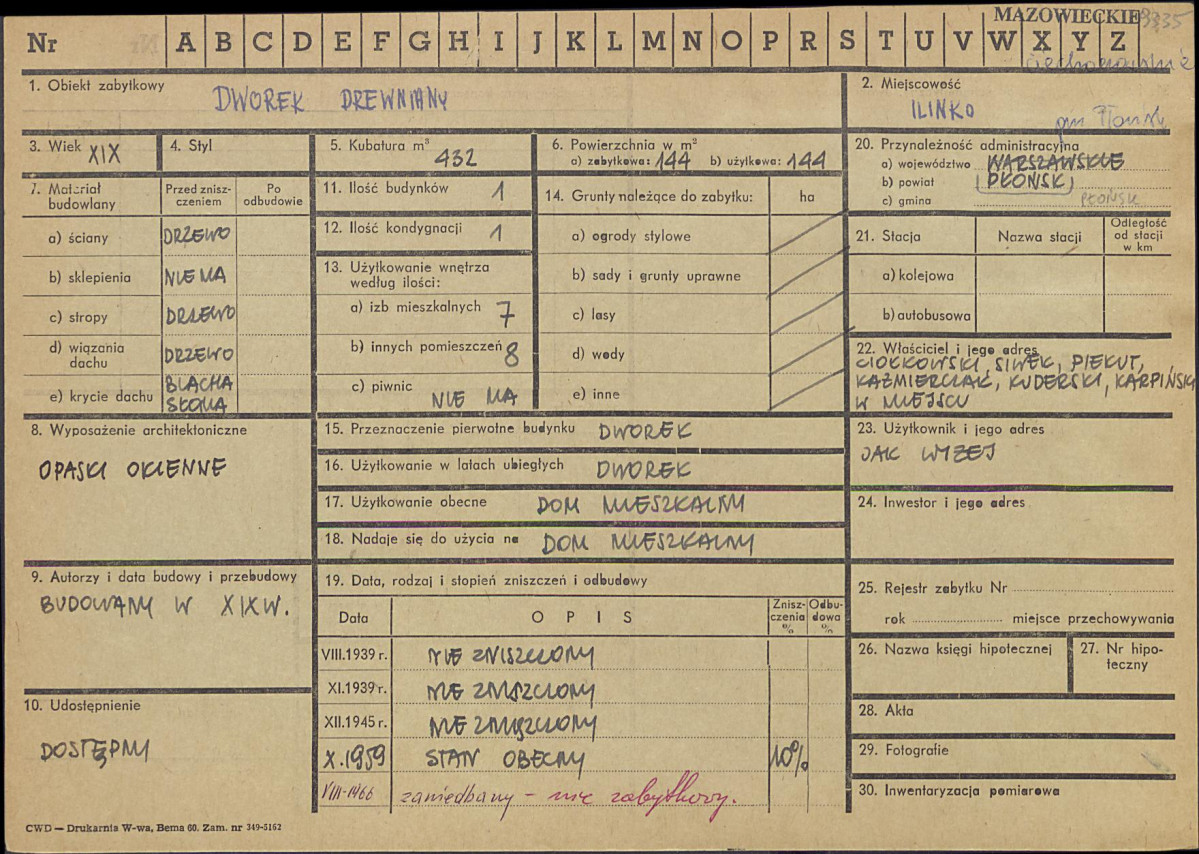 MAZOWIECKIE 3335
Nr A B C D E F G H I J K L M N O P R S T U V W X Y Z
1. Obiekt zabytkowy
DWOREK DREWNIANY
2. Miejscowość
ILINKO
3. Wiek XIX
4. Styl
5. Kubatura m³ 432
6. Powierzchnia w m²
a) zabytkowa: 144 b) użytkowa: 144
20. Przynależność administracyjna
a) województwo WARSZAWSKIE
b) powiat (PŁOŃSK)
c) gmina PŁOŃSK
7. Materiał budowlany
Przed zniszczeniem
Po odbudowie
a) ściany DRZEWO
b) sklepienia NIE MA
c) stropy DRZEWO
d) wiązania dachu DRZEWO
e) krycie dachu BLACHA SŁOMA
11. Ilość budynków 1
12. Ilość kondygnacji 1
13. Użytkowanie wnętrza według ilości:
a) izb mieszkalnych 7
b) innych pomieszczeń 8
c) piwnic NIE MA
14. Grunty należące do zabytku: ha
a) ogrody stylowe
b) sady i grunty uprawne
c) lasy
d) wody
e) inne
21. Stacja Nazwa stacji Odległość od stacji w km
a) kolejowa
b) autobusowa
22. Właściciel i jego adres
CIOŁKOWSKI, SIWEK, PIEKUT,
KAŹMIERCZAK, KUDERSKI, KARPIŃSKI
W MIEJSCU
8. Wyposażenie architektoniczne
OPASKI OKIENNE
15. Przeznaczenie pierwotne budynku DWOREK
16. Użytkowanie w latach ubiegłych DWOREK
17. Użytkowanie obecne DOM MIESZKALNY
18. Nadaje się do użycia na DOM MIESZKALNY
23. Użytkownik i jego adres
JAK WYŻEJ
24. Inwestor i jego adres
9. Autorzy i data budowy i przebudowy
BUDOWANY W XIX W.
10. Udostępnienie
DOSTĘPNY
19. Data, rodzaj i stopień zniszczeń i odbudowy
Data OPIS Zniszczenia % Odbudowa %
VIII.1939 r. NIE ZNISZCZONY
XI.1939 r. NIE ZNISZCZONY
XII.1945 r. NIE ZNISZCZONY
X.1959 STAN OBECNY 10%
VIII-1966 zaniedbany - nie zabytkowy.
25. Rejestr zabytku Nr
rok miejsce przechowywania
26. Nazwa księgi hipotecznej
27. Nr hipoteczny
28. Akta
29. Fotografie
30. Inwentaryzacja pomiarowa
CWD — Drukarnia W-wa, Bema 60. Zam. nr 349-5162